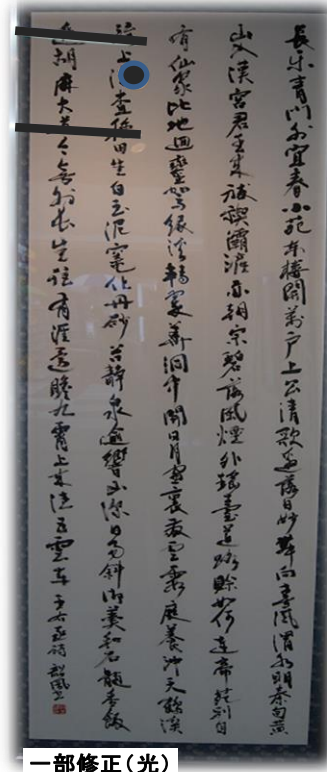 長樂青門外宜春小苑東樓開萬戶上公清歌邀落日妙舞向春風渭水明秦甸黃
山入漢宮君王來祓禊灞滻亦朝宗碧落風煙外瑤臺道路賒如何連帝苑別自
有仙家此地迴鑾駕緣溪轉翠華洞中開日月窗裏發雲霞庭養沖天鶴溪
流上漢查種田生白玉泥竈化丹砂谷靜泉逾響山深日易斜御羹和石髓香飯
進胡麻大道今無外長生詎有涯還瞻九霄上來往五雲車 王右丞詩
一部修正(光)